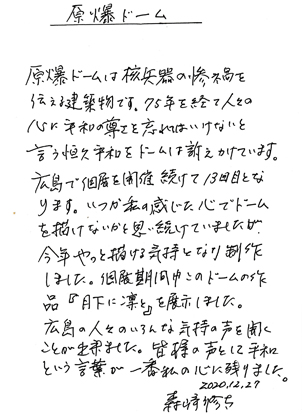 原爆ドーム
原爆ドームは核兵器の惨禍を
伝える建築物です。75年を経て人々の
心に平和の尊さを忘れはいけないと
言う恒久平和をドームは訴えかけています。
広島で個展を開催続けて13回目とな
ります。いつか私の感じた心でドーム
を描けないかと思い続けていましたが
今年やっと描ける気持となり制作
しました。個展期間中このドームの作
品『月下に凛と』を展示しました。
広島の人々のいろんな気持の声を聞く
ことが出来ました。皆様の声として平和
という言葉が一番私の心に残りました。
2020.12.27